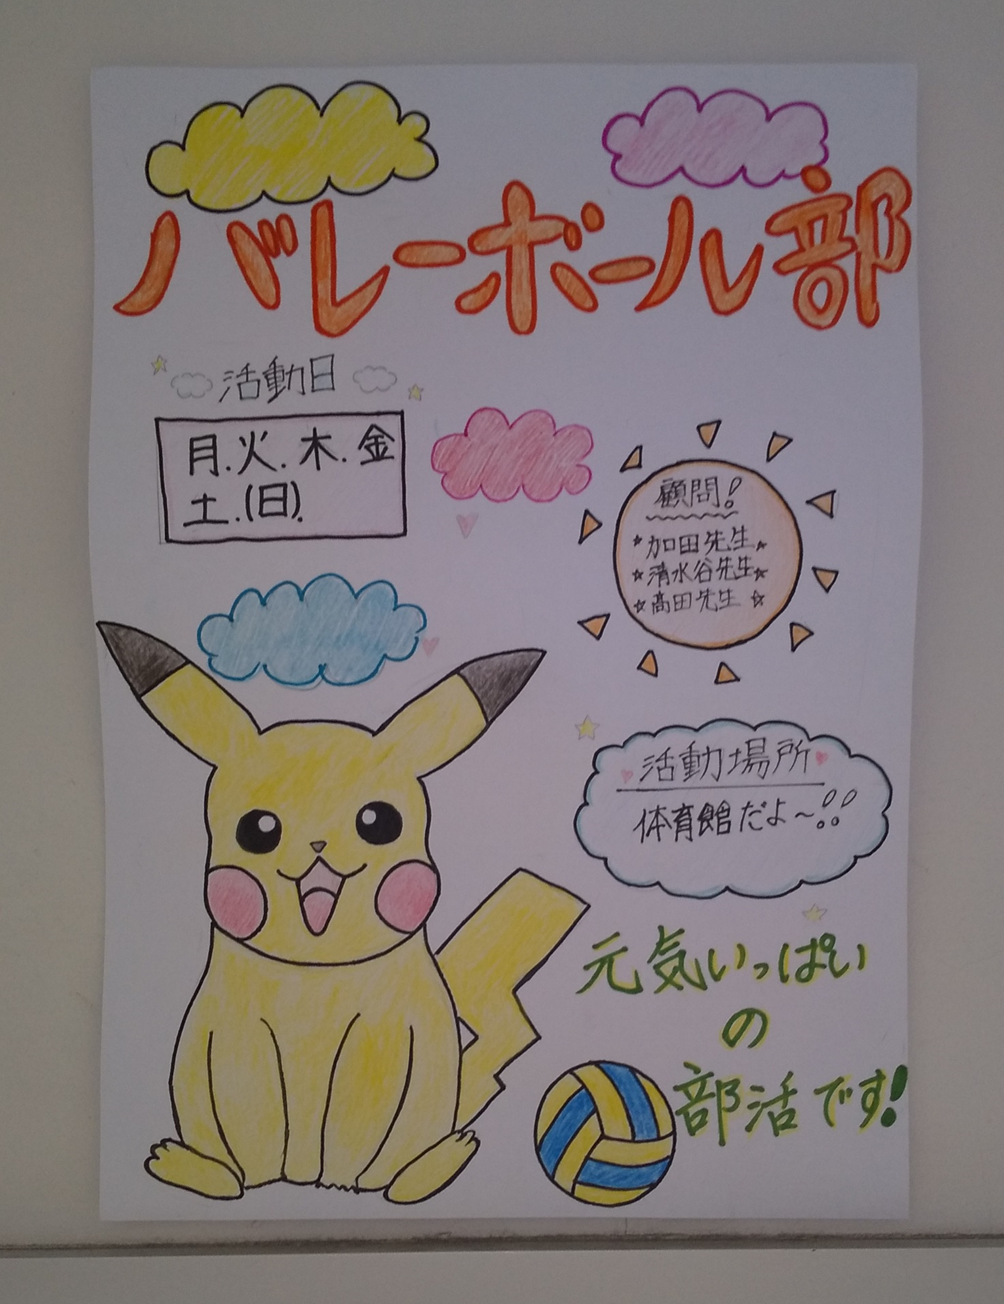 バレーボール部
活動日
月.火.木.金
土.(日).
顧問!
加田先生
清水谷先生
高田先生
活動場所
体育館だよ〜!!
元気いっぱい
の
部活です!